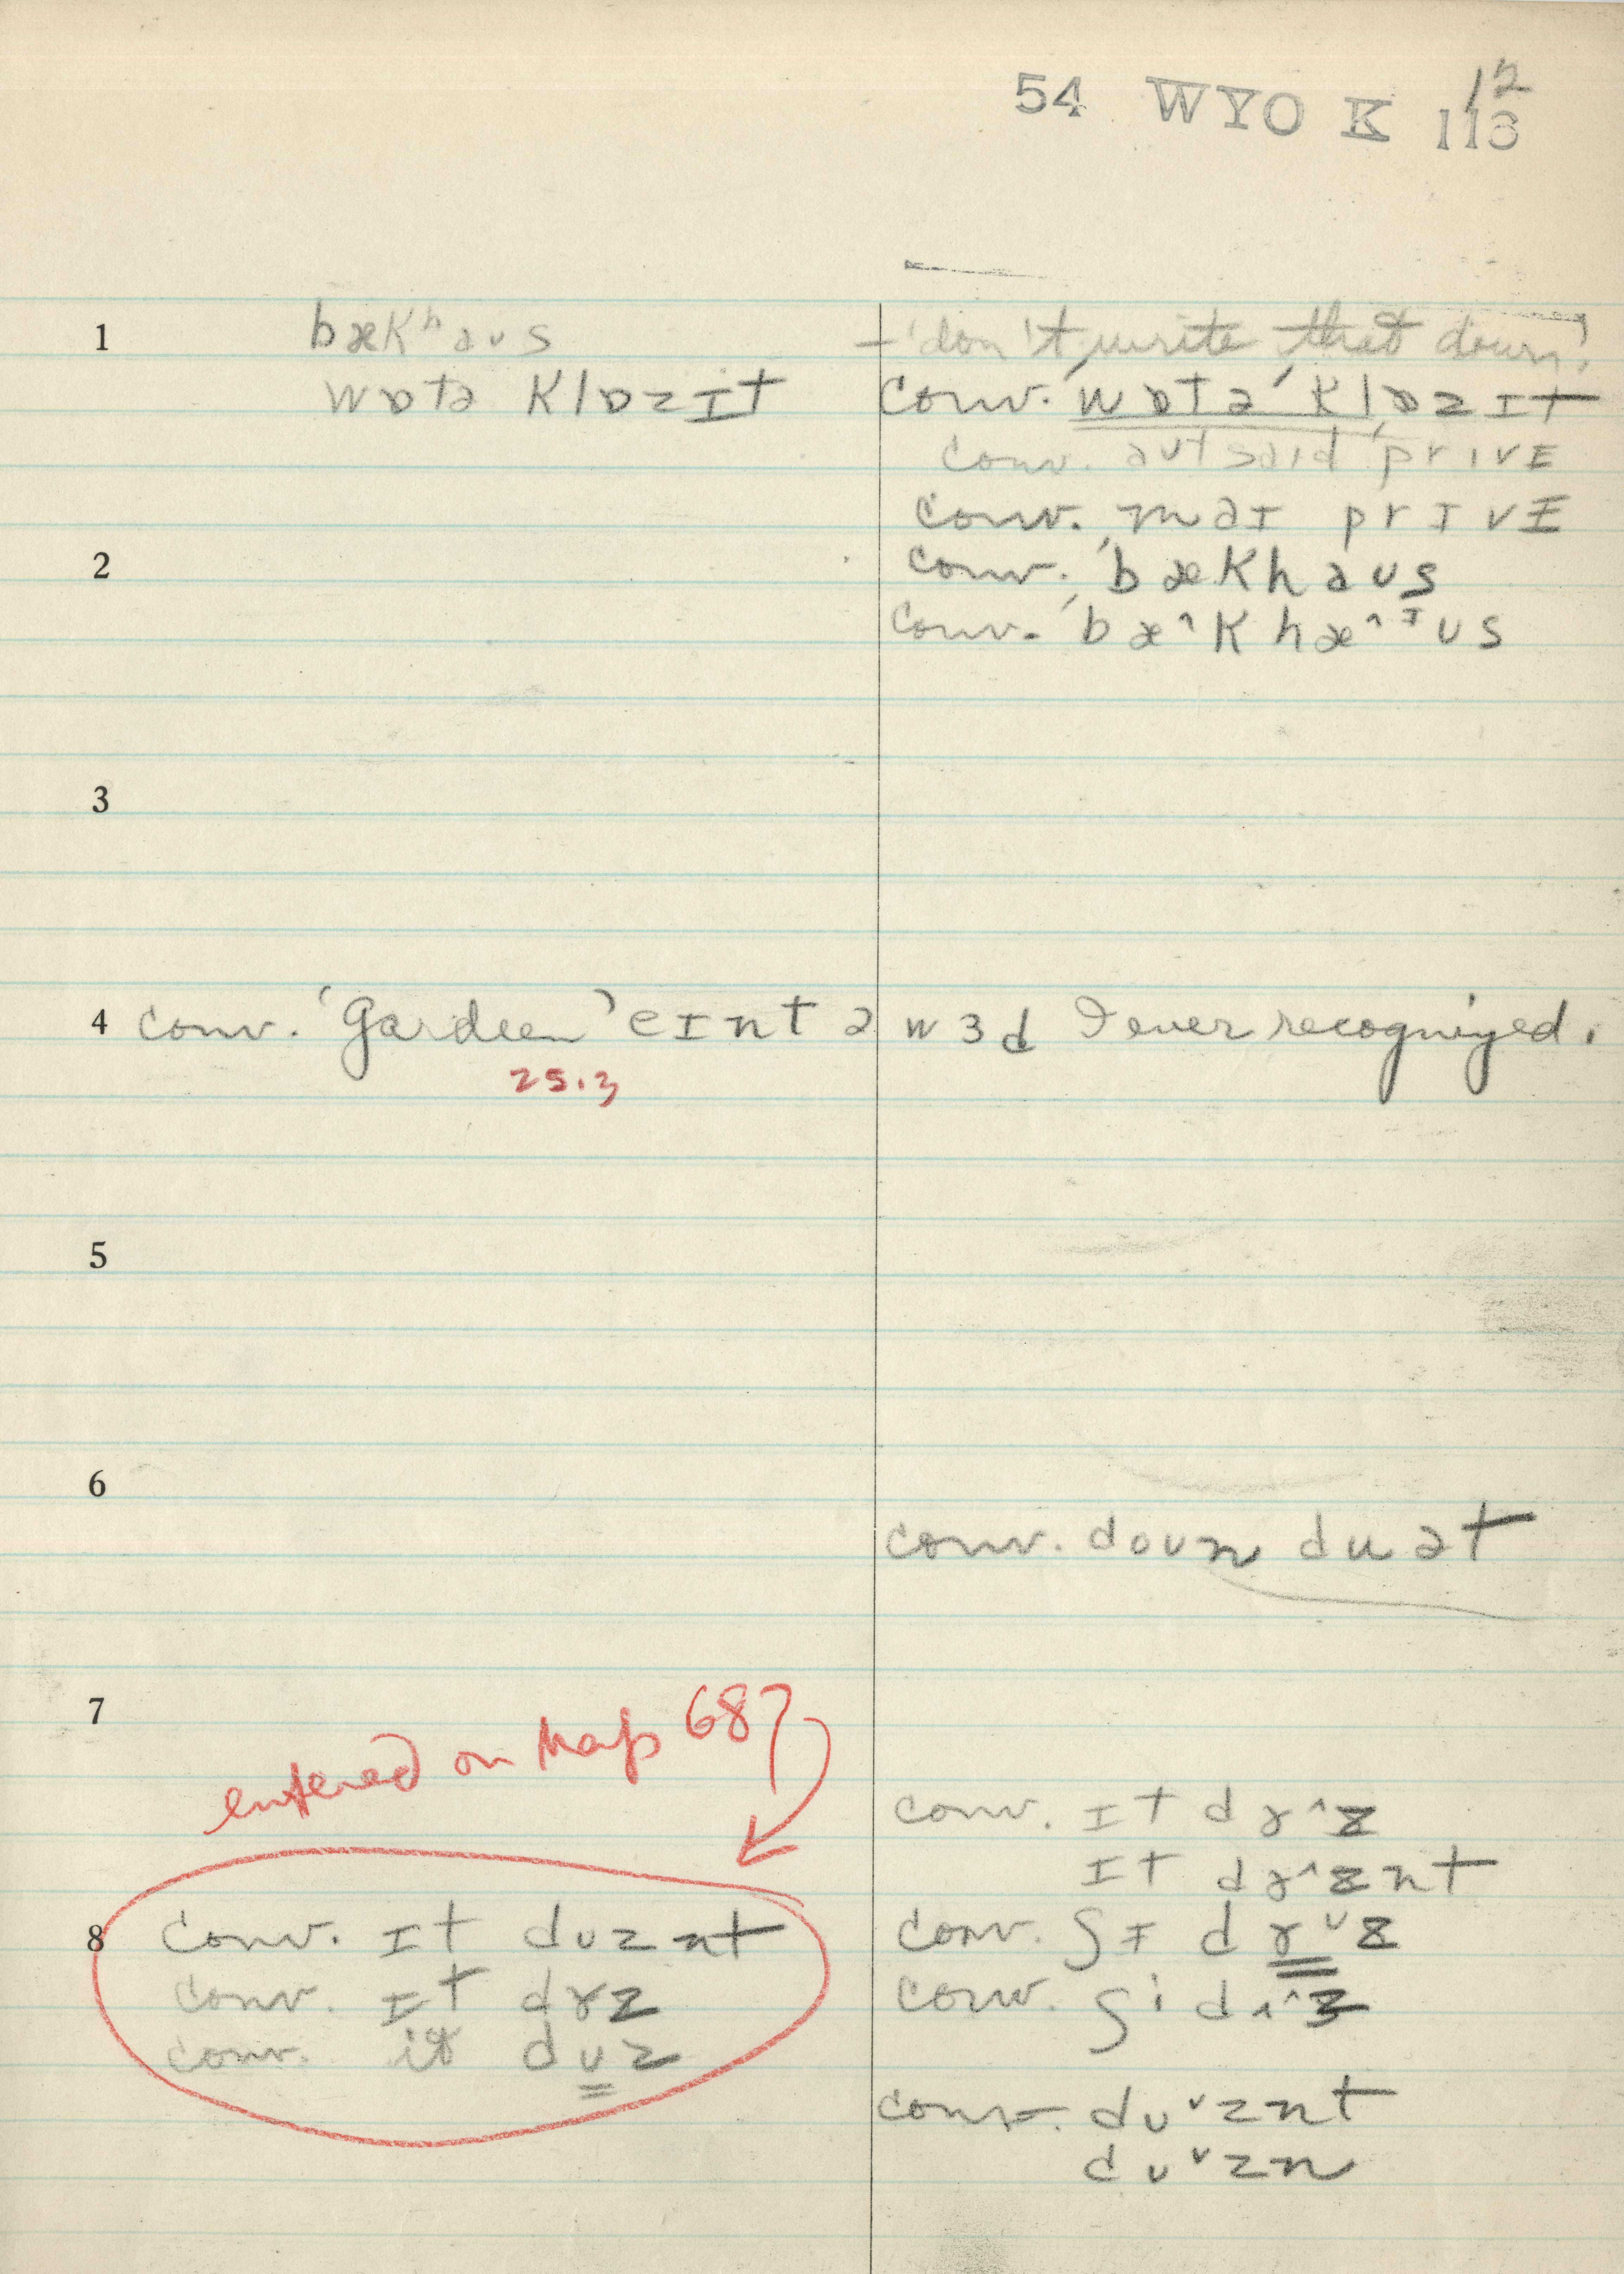 54 WYO K 113
12
1 bækʰaʊs - 'don't write that down!'
wɒtə klɒzɪt conv. 'wɒtə' klɒzɪt
conv. aʊtsaɪd prɪvɛ
conv. maɪ prɪvɪ
2 conv. 'bækhaʊs
conv. 'bæ^khæ^ɪʊs
3
4 conv. 'Gardeen' eɪnt ə wɜd I ever recognized.
25.3
5
6
conv. doʊn du ət
7
entered on Map 687
conv. ɪt dɤ^z
ɪt dɤ^znt
8 conv. ɪt dʊznt conv. ʃɪ dɤ˅z
conv. ɪt dɤz conv. ʃi dʌ^z
conv. it dʊz
conv. dʊ˅znt
dʊ˅zn